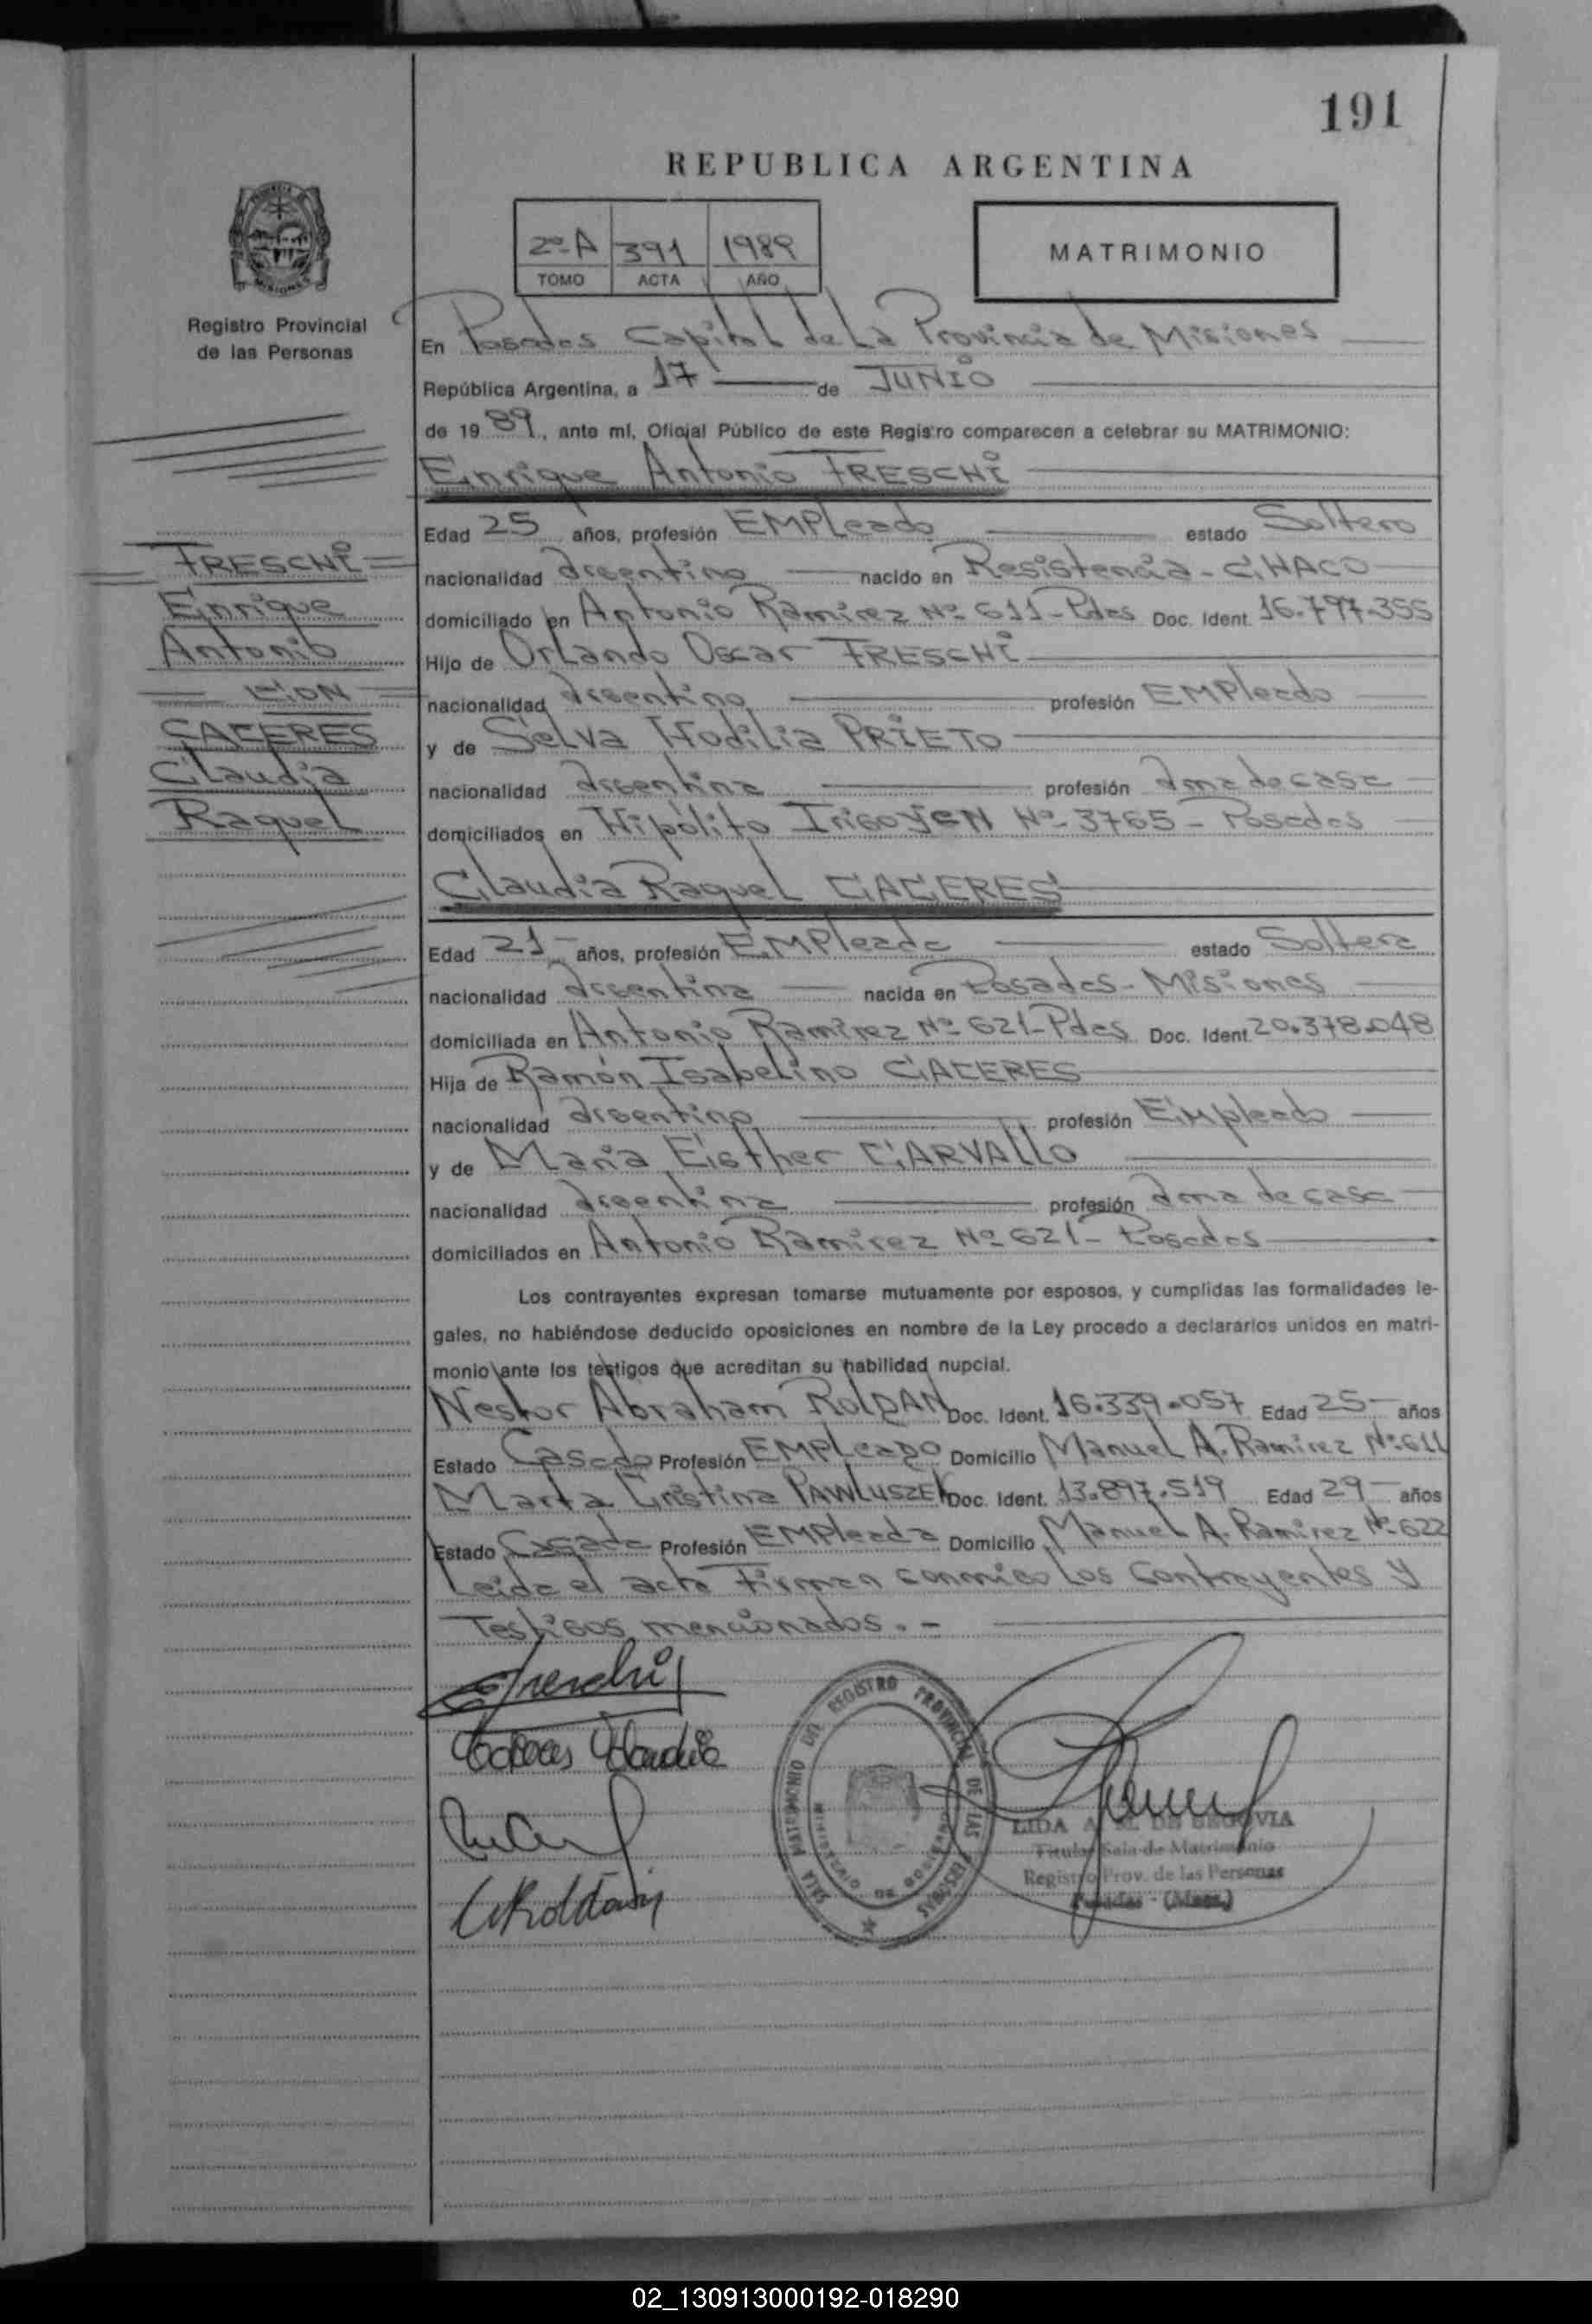 191
REPUBLICA ARGENTINA
2º A 391 1989
TOMO ACTA AÑO
MATRIMONIO
Registro Provincial
de las Personas
En Posadas Capital de La Provincia de Misiones
República Argentina, a 17 de JUNIO
de 1989, ante mí, Oficial Público de este Registro comparecen a celebrar su MATRIMONIO:
Enrique Antonio FRESCHI
Edad 25 años, profesión EMPLeado estado Soltero
nacionalidad argentino nacido en Resistencia - CHACO
domiciliado en Antonio Ramirez Nº 611 - Pdas Doc. Ident. 16.797.355
Hijo de Orlando Oscar FRESCHI
nacionalidad argentino profesión EMPleado
y de Selva Hodilia PRIETO
nacionalidad argentina profesión ama de casa
domiciliados en Hipólito IrigoyEN Nº 3765 - Posadas
FRESCHI
Enrique
Antonio
CON
CACERES
Claudia
Raquel
Claudia Raquel CACERES
Edad 21 años, profesión EMPleada estado Soltera
nacionalidad argentina nacida en Posadas - Misiones
domiciliada en Antonio Ramirez Nº 621 - Pdas Doc. Ident. 20.378.048
Hija de Ramón Isabelino CACERES
nacionalidad argentino profesión Empleado
y de Maria Esther CARVALLO
nacionalidad argentina profesión ama de casa
domiciliados en Antonio Ramirez Nº 621 - Posadas
Los contrayentes expresan tomarse mutuamente por esposos, y cumplidas las formalidades le-
gales, no habiéndose deducido oposiciones en nombre de la Ley procedo a declararlos unidos en matri-
monio ante los testigos que acreditan su habilidad nupcial.
Nestor Abraham ROLDAN Doc. Ident. 16.339.057 Edad 25 años
Estado Casado Profesión EMPLEADO Domicilio Manuel A. Ramirez Nº 611
Marta Cristina PAWLUSZEK Doc. Ident. 13.897.519 Edad 29 años
Estado Casada Profesión EMPleada Domicilio Manuel A. Ramirez Nº 622
Leida el acta firman conmigo Los Contrayentes y
Testigos mencionados. -
EFreschi
Caceres Claudia
Roldán
SALA MATRIMONIO DEL REGISTRO PROVINCIAL DE LAS PERSONAS
MINISTERIO DE GOBIERNO
LIDA A. M. DE SEGOVIA
Titular Sala de Matrimonio
Registro Prov. de las Personas
Posadas - (Mnes.)
02_130913000192-018290